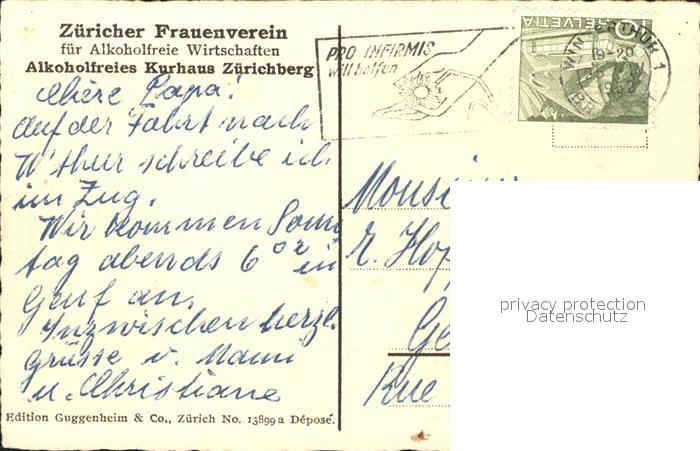 Züricher Frauenverein
für Alkoholfreie Wirtschaften
Alkoholfreies Kurhaus Zürichberg
PRO INFIRMIS
will helfen
HELVETIA
WINTERTHUR 1
19-20
1952
Chère Papa!
Auf der Fahrt nach
W'thur schreibe ich
im Zug.
Wir kommen Sonn
tag abends 6 02 in
Genf an.
Inzwischen herzl.
Grüsse v. Mami
u. Christiane
Edition Guggenheim & Co., Zürich No. 13899a Déposé.
Rue
privacy protection
Datenschutz